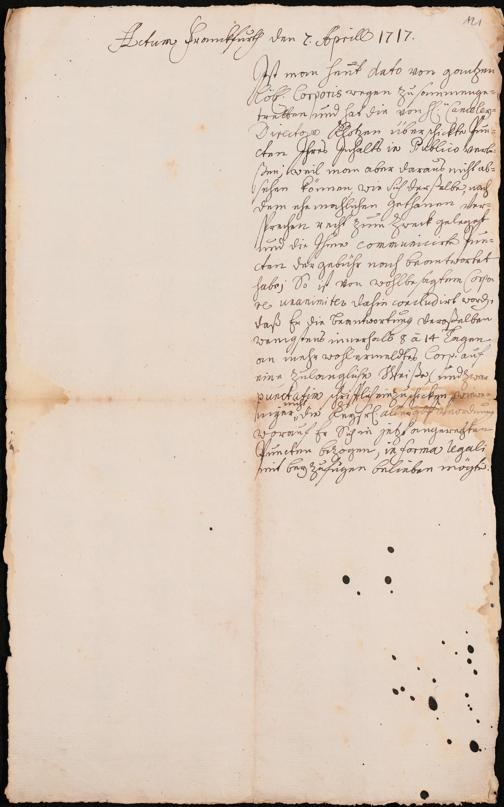 121
Actum Franckfurth den 7. Aprill 1717.
Ist man heut dato von gantzen
Löbl. Corporis wegen zusammenge-
tretten, und hat die von H.
Directore überschickte Pun-
cten Ihres Inhalts in Publico verle-
ßen, weil man aber daraus nicht ab-
sehen können, wie sich derselbe, nach
dem ehemahlichen gethanen Ver-
sprechen recht zum Zweck geleget
und die Ihme communicirte Pun-
cten der gebühr nach beantwortet
habe; So ist von wohlbesagtem Corpo-
re unanimiter dahin concludirt worden
daß Er die Beantwortung derselben
wenigstens innerhalb 8 à 14 Tagen
an mehr wohlermeldtes Corpus auf
eine zulängliche Weiße, und zwar
punctatim schrifftlich einzuschicken
nicht
die Kayßl.
worauf Er Sich in jetzt angeregten
Puncten bezogen, in forma legali
mit beyzufügen belieben möge.